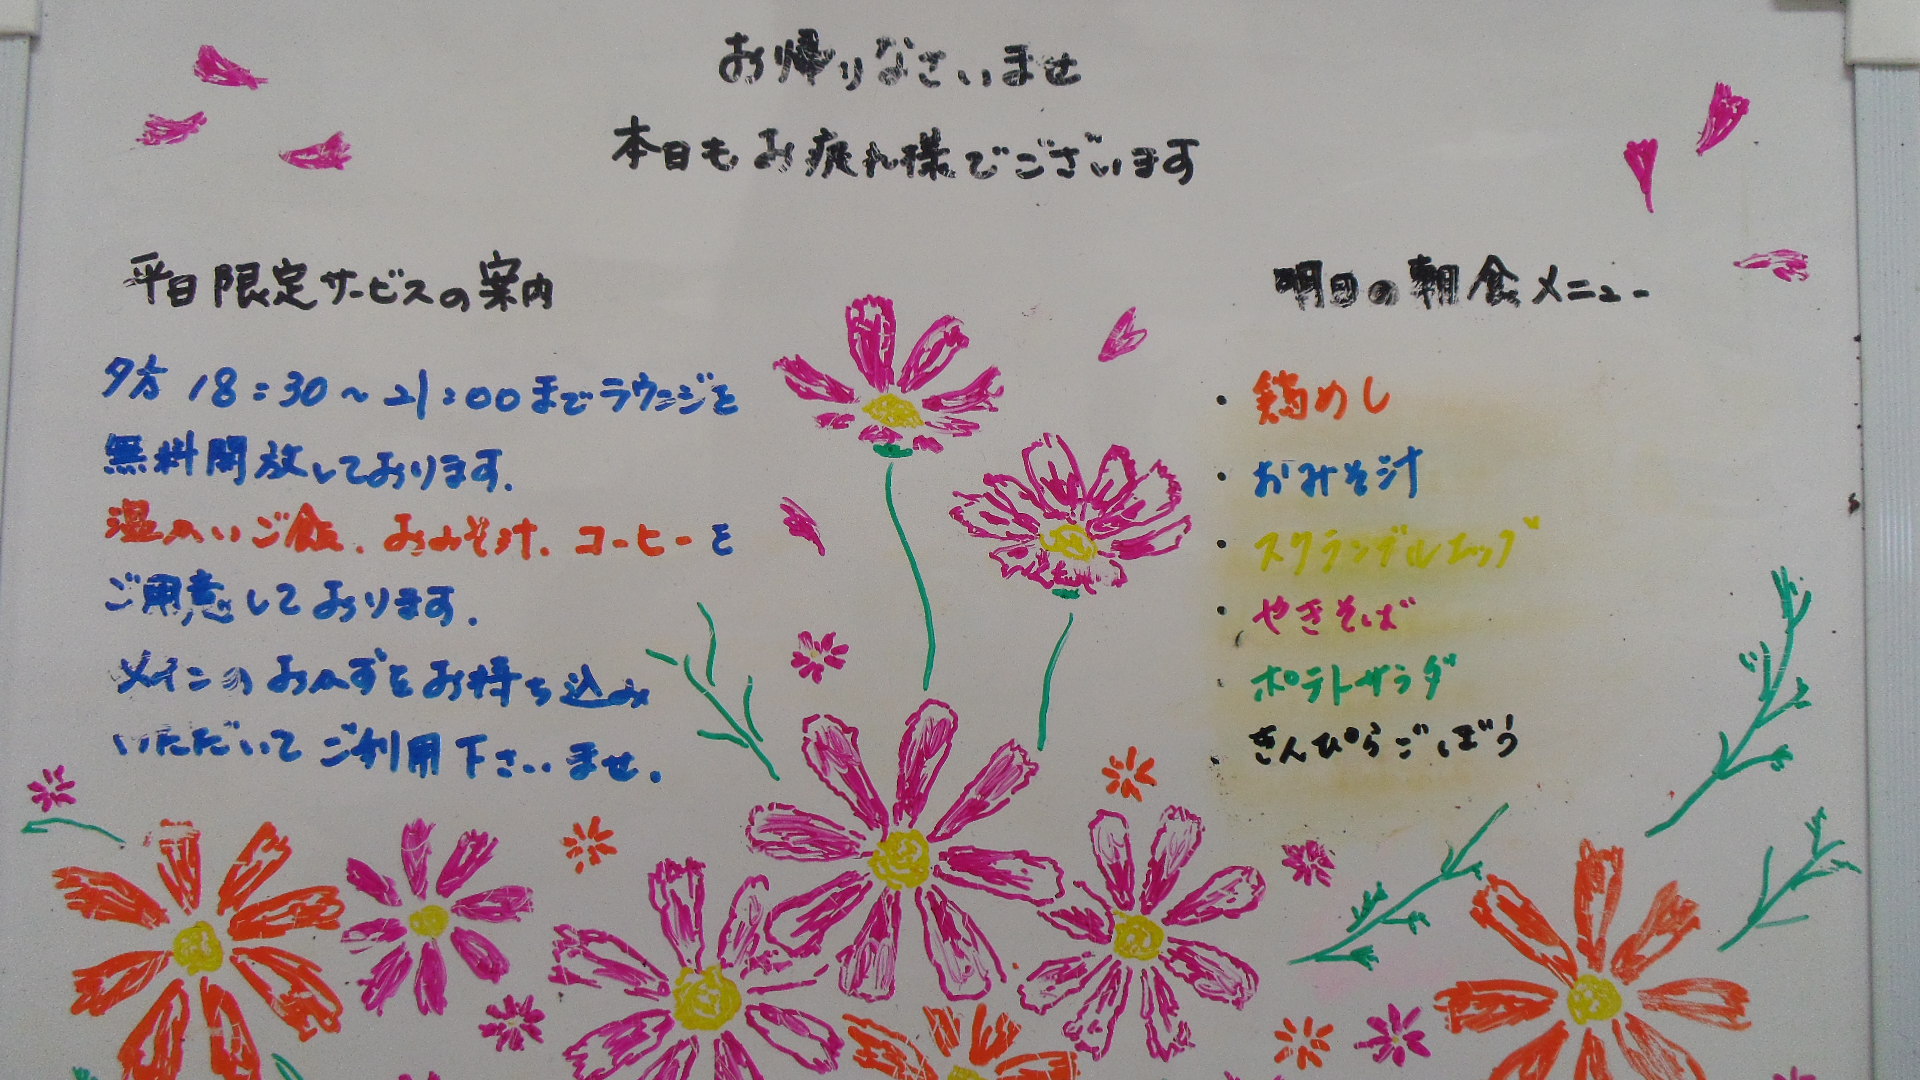 お帰りなさいませ
本日もお疲れ様でございます
平日限定サービスの案内
夕方 18:30～21:00までラウンジを
無料開放しております.
温かいご飯、おみそ汁、コーヒーを
ご用意しております.
メインのおかずをお持ち込み
いただいてご利用下さいませ.
明日の朝食メニュー
・鶏めし
・おみそ汁
・スクランブルエッグ
・やきそば
・ポテトサラダ
・きんぴらごぼう